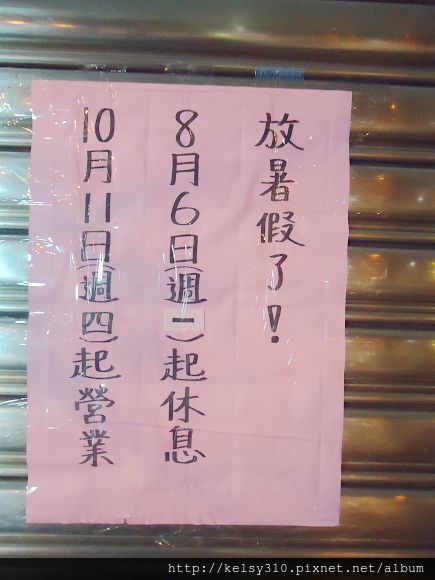 放暑假了!
8月6日(週一)起休息
10月11日(週四)起營業
http://kelsy310.pixnet.net/album